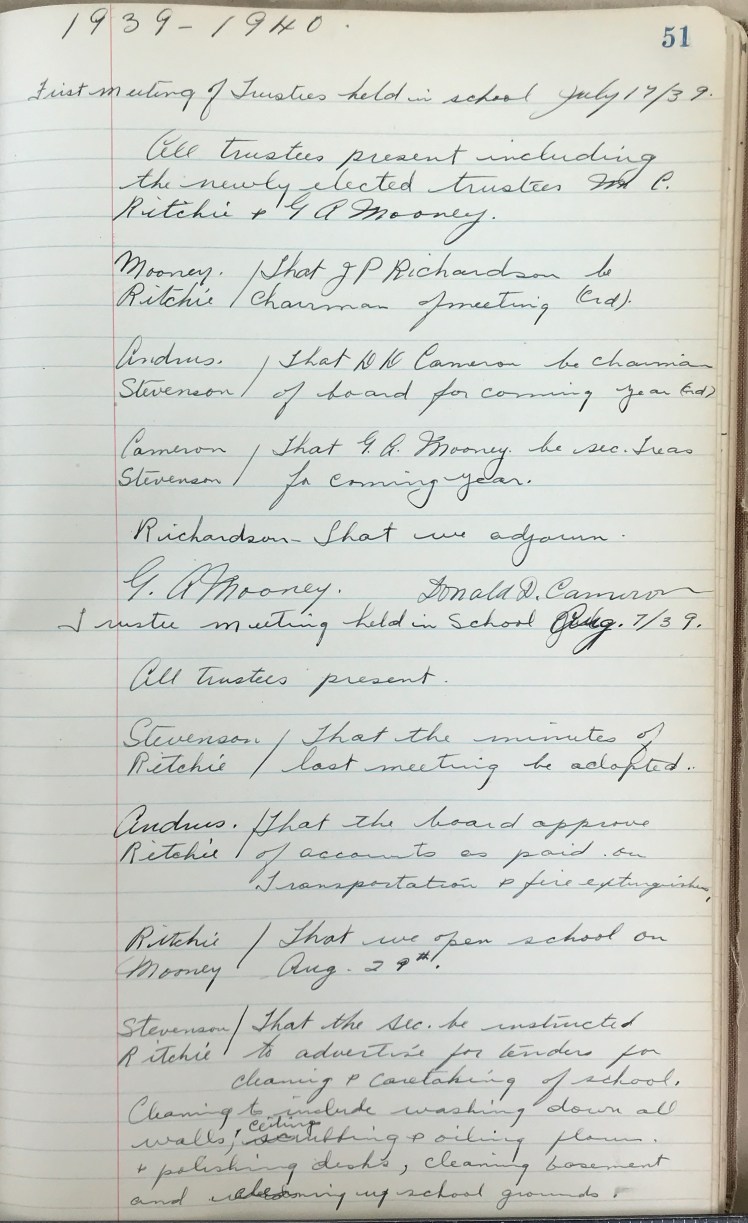 1939-1940.
51
First meeting of Trustees held in school July 17/39.
All trustees present including
the newly elected trustees C.
Ritchie & G A Mooney.
Mooney. / That J P Richardson be
Ritchie / Chairman of meeting (Crd).
Andrus. / That D D Cameron be chairman
Stevenson / of board for coming year (Crd)
Cameron / That G. A. Mooney. be sec. Treas
Stevenson / for coming year.
Richardson - That we adjourn.
G. A Mooney. Donald D. Cameron
Trustee meeting held in School Aug. 7/39.
All trustees present.
Stevenson / That the minutes of
Ritchie / last meeting be adopted..
Andrus. / That the board approve
Ritchie / of accounts as paid on
Transportation & fire extinguishers,
Ritchie / That we open school on
Mooney Aug. 29th.
Stevenson / That the sec. be instructed
Ritchie / to advertise for tenders for
cleaning & caretaking of school.
Cleaning to include washing down all
walls, ceilings scrubbing & oiling floors.
& polishing desks, cleaning basement
and cleaning up school grounds.